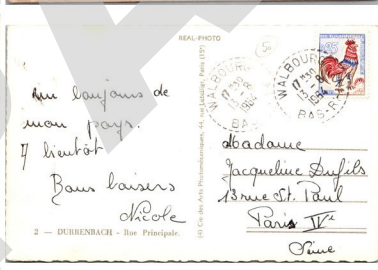 REAL-PHOTO
WALBOURG
17 H30
13-8
1964
BAS-RHIN
WALBOURG
17 H30
13-8
1964
BAS-RHIN
de
mon pays.
A bientôt
Bons baisers
Nicole
2 — DURRENBACH - Rue Principale.
(4) Cie des Arts Photomécaniques, 44, rue Letellier, Paris (15e)
Madame
Jacqueline Dufils
13 rue St. Paul
Paris IVe
Seine